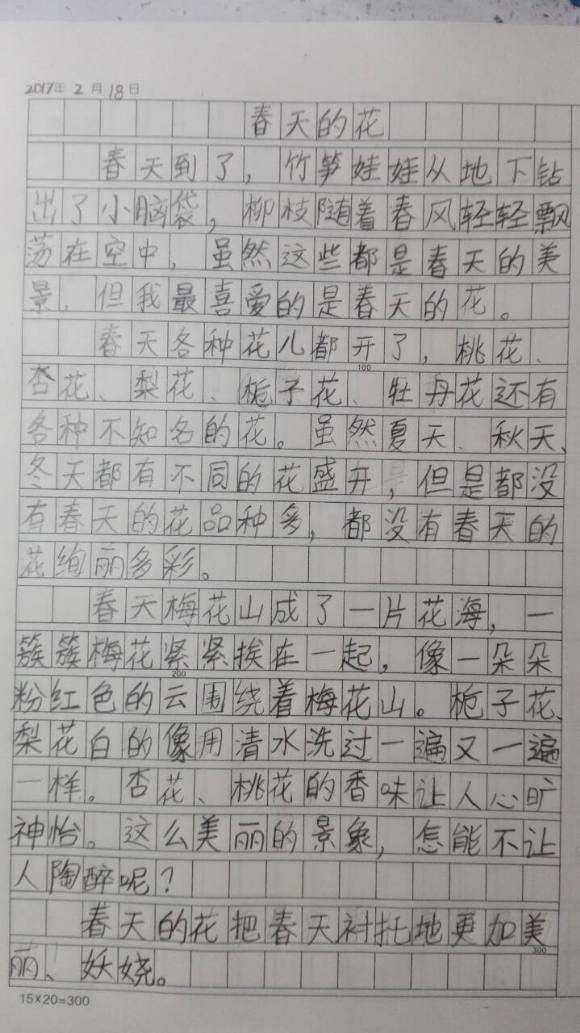 2017年2月18日
春天的花
春天到了，竹笋娃娃从地下钻
出了小脑袋，柳枝随着春风轻轻飘
荡在空中，虽然这些都是春天的美
景，但我最喜爱的是春天的花。
春天各种花儿都开了，桃花、
100
杏花、梨花、栀子花、牡丹花还有
各种不知名的花。虽然夏天、秋天、
冬天都有不同的花盛开，但是都没
有春天的花品种多，都没有春天的
花绚丽多彩。
春天梅花山成了一片花海，一
簇簇梅花紧紧挨在一起，像一朵朵
200
粉红色的云围绕着梅花山。栀子花、
梨花白的像用清水洗过一遍又一遍
一样。杏花、桃花的香味让人心旷
神怡。这么美丽的景象，怎能不让
人陶醉呢？
春天的花把春天衬托地更加美
300
丽、妖娆。
15×20=300